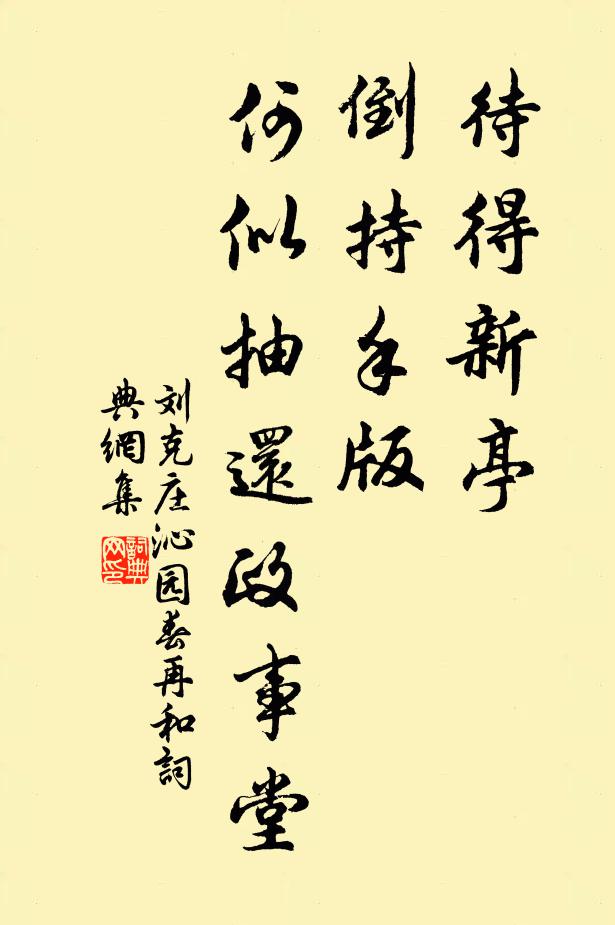 待得新亭
倒持手版
何似抽還政事堂
刘克庄沁园春再和詞
典網集
詞典
网印